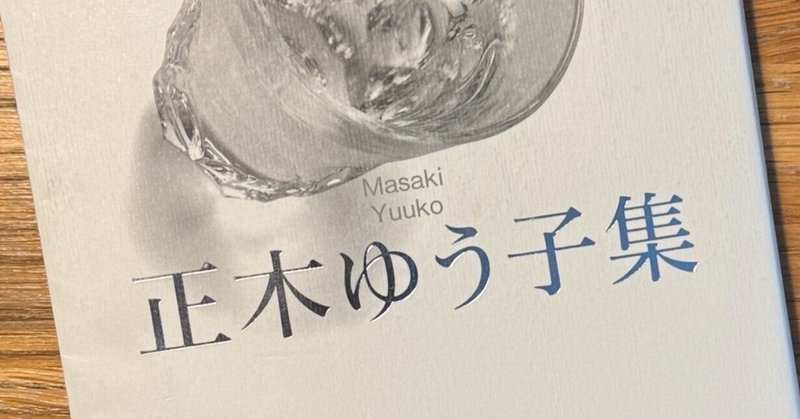 Masaki
Yuuko
正木ゆう子集